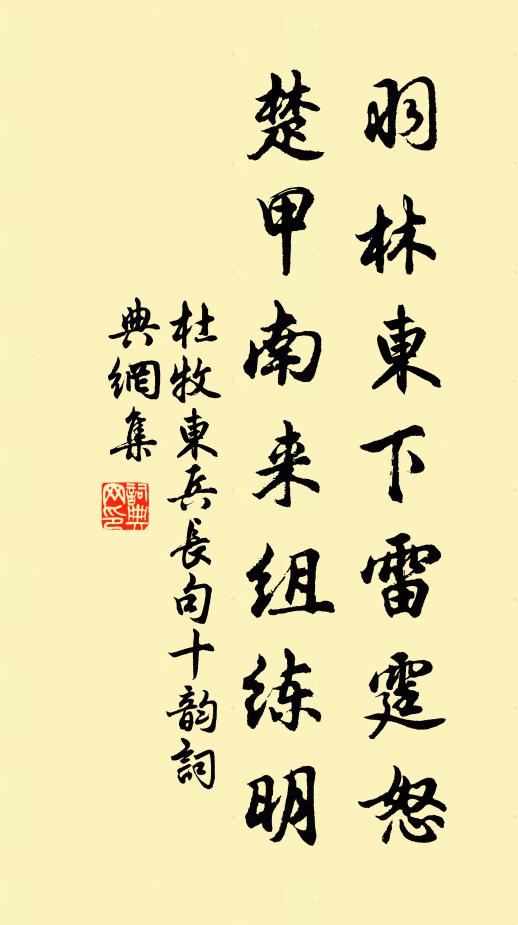 羽林東下雷霆怒
楚甲南来组练明
杜牧東兵長句十韵詞
典網集
詞典网印